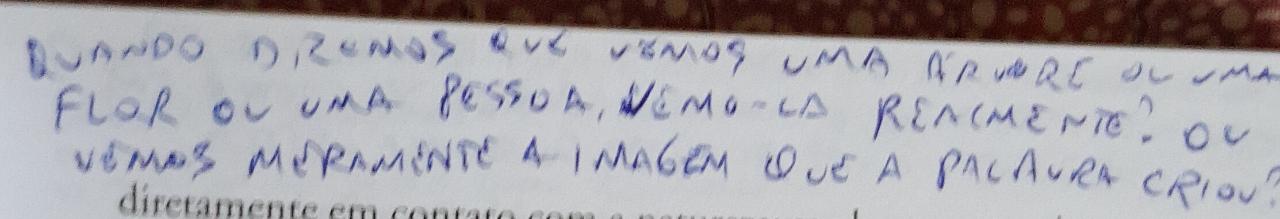 QUANDO DIZEMOS QUE VEMOS UMA ÁRVORE OU UMA
FLOR OU UMA PESSOA, VEMO-LA REALMENTE? OU
VEMOS MERAMENTE A IMAGEM QUE A PALAVRA CRIOU?
diretamente em contato com a